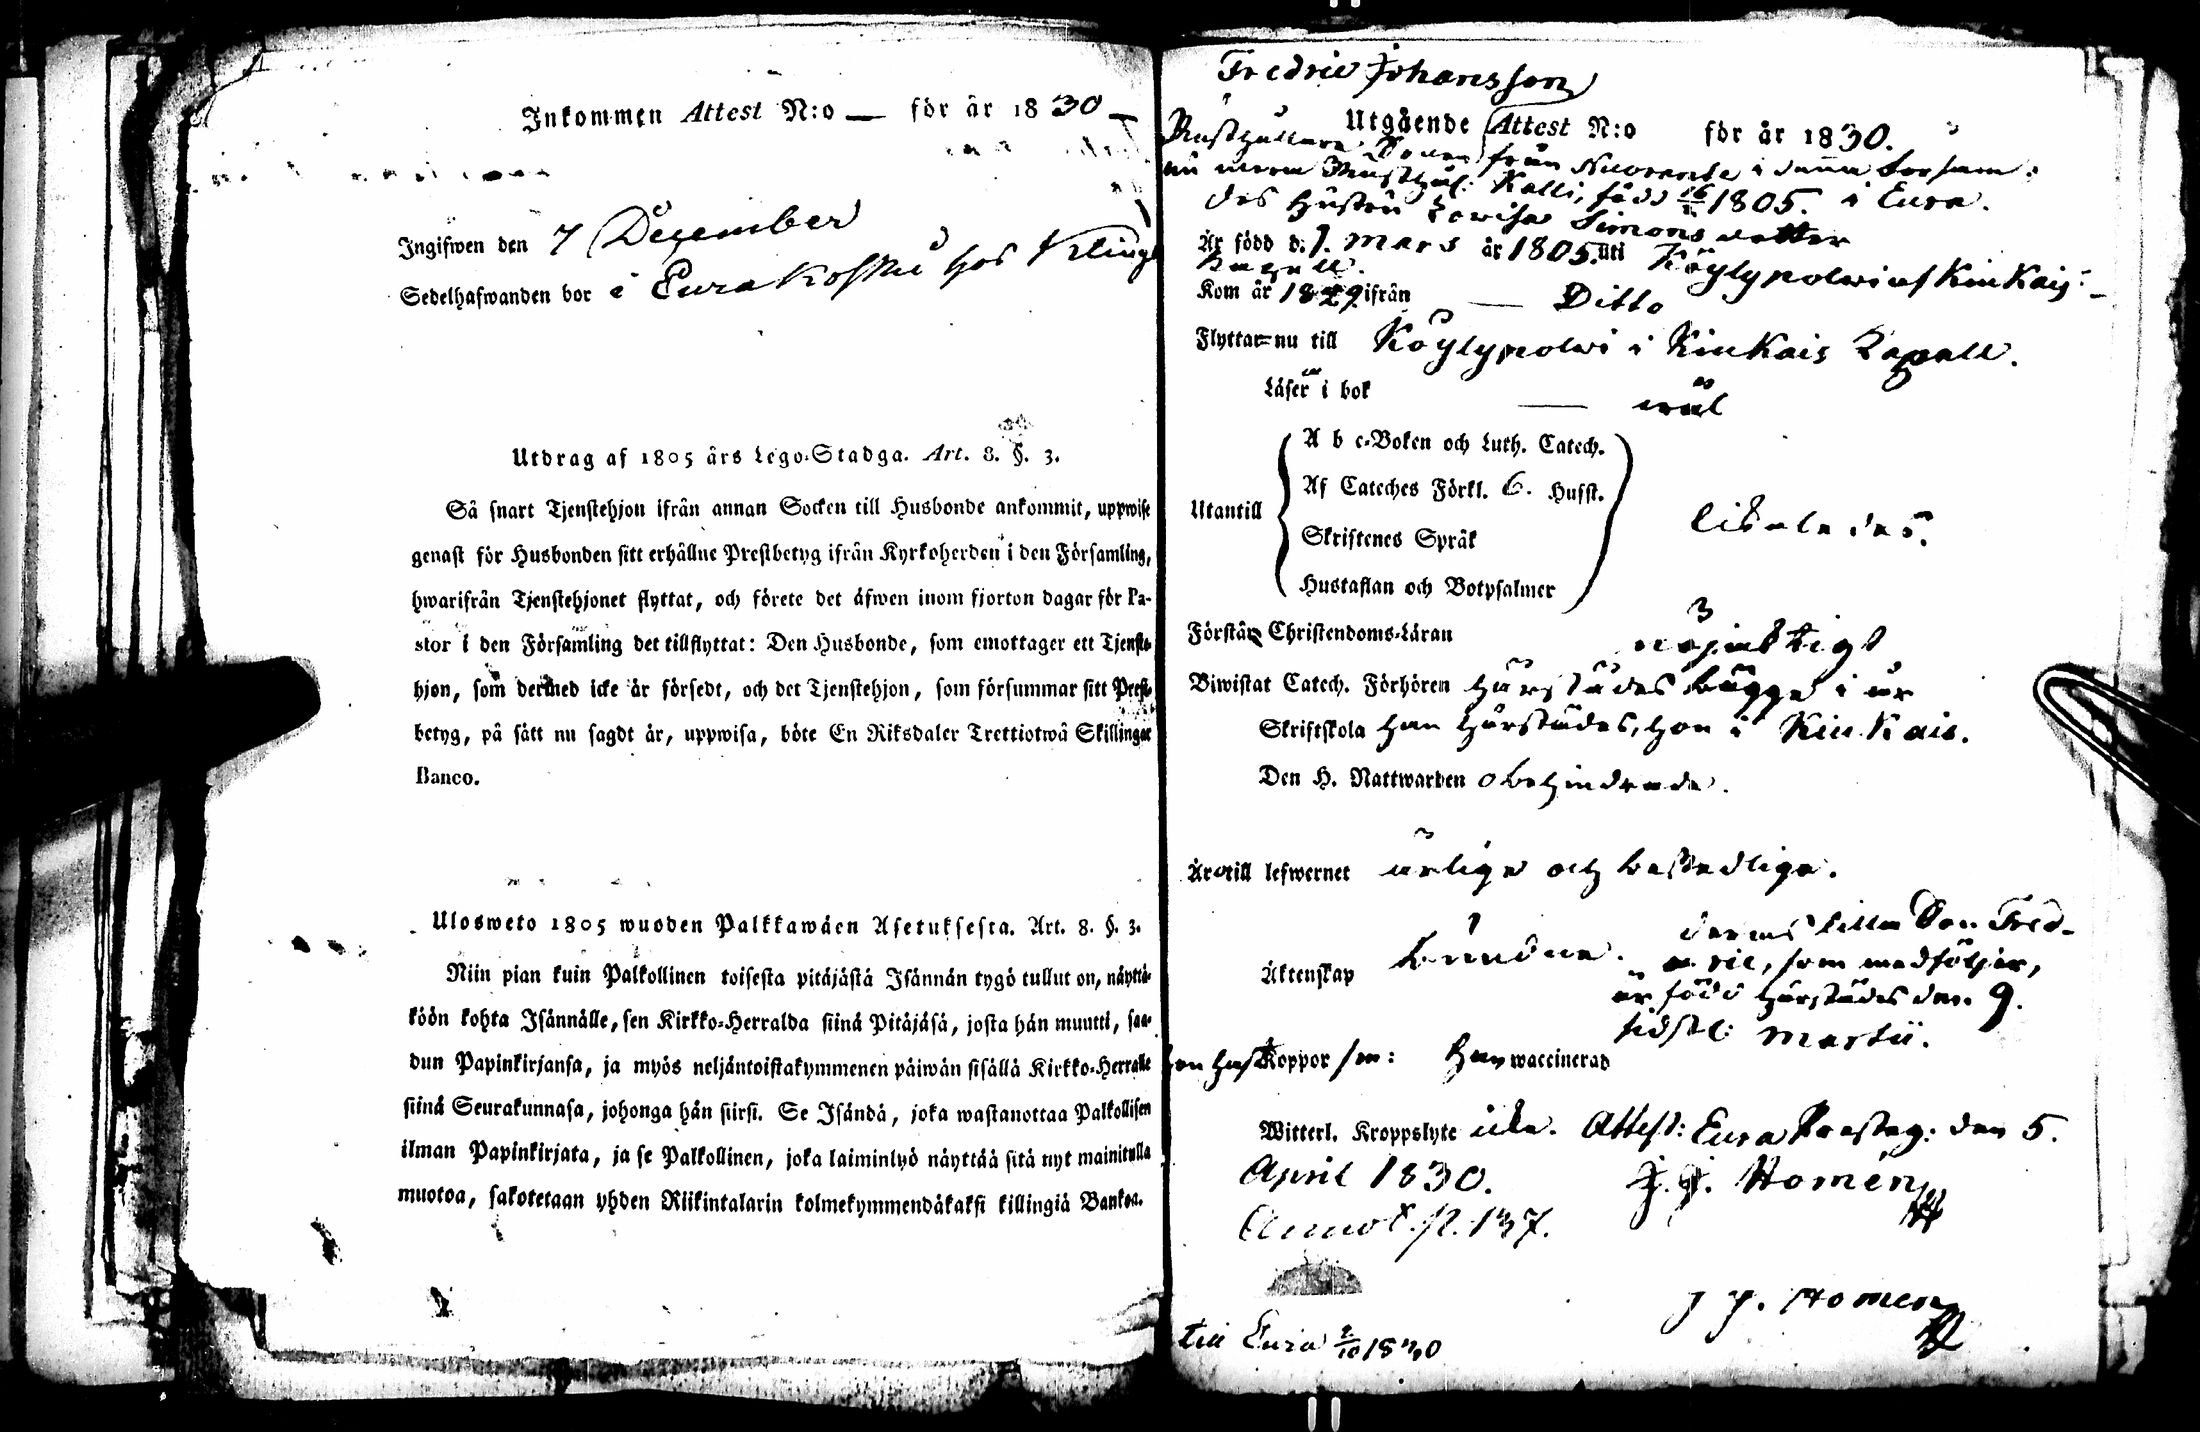 Inkommen Attest N:o — för år 1830
Ingifwen den 7 December
Sedelhafwanden bor i Eurakoski hos Kling
Utdrag af 1805 års Lego-Stadga. Art. 8. §. 3.
Så snart Tjenstehjon ifrån annan Socken till Husbonde ankommit, uppwise
genast för Husbonden sitt erhållne Prestbetyg ifrån Kyrkoherden i den Församling,
hwarifrån Tjenstehjonet flyttat, och förete det äfwen inom fjorton dagar för Pa-
stor i den Församling det tillflyttat: Den Husbonde, som emottager ett Tjenste-
hjon, som dermed icke är försedt, och det Tjenstehjon, som försummar sitt Prest-
betyg, på sätt nu sagdt är, uppwisa, böte En Riksdaler Trettiotwå Skillingar
Banco.
Ulosweto 1805 wuoden Palkkawäen Asetuksesta. Art. 8. §. 3.
Niin pian kuin Palkollinen toisesta pitäjästä Isännän tygö tullut on, näyttä-
köön kohta Isännälle, sen Kirkko-Herralda siinä Pitäjäsä, josta hän muutti, saa-
dun Papinkirjansa, ja myös neljäntoistakymmenen päiwän sisällä Kirkko-Herralle
siinä Seurakunnasa, johonga hän siirsi. Se Isändä, joka wastanottaa Palkollisen
ilman Papinkirjata, ja se Palkollinen, joka laiminlyö näyttää sitä nyt mainitulla
muotoa, sakotetaan yhden Riikintalarin kolmekymmendäkaksi killingiä Bankoa.
Fredric Johansson
Utgående Attest N:o för år 1830.
Rusthållare Sonen från i denna Försam:
nu mera Kalli, född 16 1805. i Eura.
des Hustru Lovisa Simons dotter
Är född d. 1. Mars år 1805. uti Köylypolwi af Kiukais
Kapell.
Kom år 1829 ifrån — Ditto
Flyttar nu till Köylypolwi i Kiukais Kapell.
Läser i bok — wäl
A b c-Boken och Luth. Catech.
Af Cateches Förkl. 6. Hufst.
Utantill
Skriftenes Språk
Hustaflan och Botpsalmer
likaledes.
Förstår Christendoms-Läran nöjaktigt
Biwistat Catech. Förhören härstädes bägge i år
Skriftskola han härstädes, hon i Kiukais.
Den H. Nattwarden obehindrade.
Äro till lefwernet ärlige och beskedlige.
Äktenskap bundne. deras lilla Son Fred-
ric, som medföljer,
är född härstädes den 9.
sidstl: Martii.
hon haft Koppor sm: Han waccinerad
Witterl. Kroppslyte icke. Attest: Eura Presteg: den 5.
April 1830. J. J. Homén
Annot. p. 137.
J J. Homén
till Eura 2/10 1830